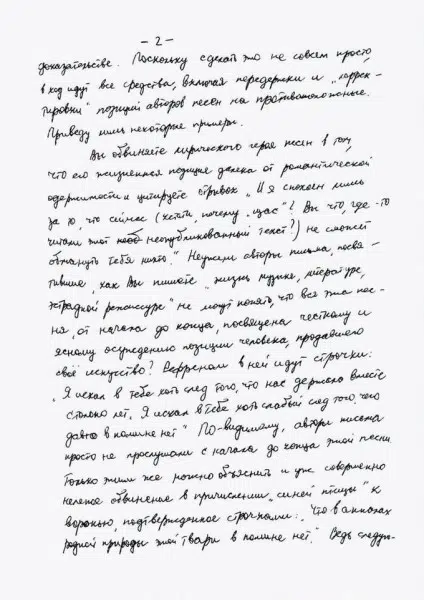 - 2 -
доказательстве. Поскольку сделать это не совсем просто,
в ход идут все средства, включая передержки и „коррек-
тировки" позиций авторов песен на противоположные.
Приведу лишь некоторые примеры.
Вы обвиняете лирического героя песен в том,
что его жизненная позиция далека от романтической
одержимости и цитируете отрывок „И я спокоен лишь
за то, что сейчас (кстати, почему „щас"? Вы что, где-то
читали этот неопубликованный текст?) не сможет
обмануть тебя никто." Неужели авторы письма, посвя-
тившие, как Вы пишете „жизнь музыке, литературе,
эстрадной режиссуре" не могут понять, что вся эта пес-
ня, от начала до конца, посвящена честному и
ясному осуждению позиции человека, продавшего
своё искусство? Рефреном в ней идут строчки:
„Я искал в тебе хоть след того, что нас держало вместе
столько лет, Я искал в тебе хоть слабый след того, чего
давно в помине нет" По-видимому, авторы письма
просто не прослушали с начала до конца этой песни.
Только этим же можно объяснить и уж совершенно
нелепое обвинение в причислении „синей птицы" к
воронью, подтвержденное строчками: „Что в анналах
родной природы этой твари в помине нет." Ведь следую-